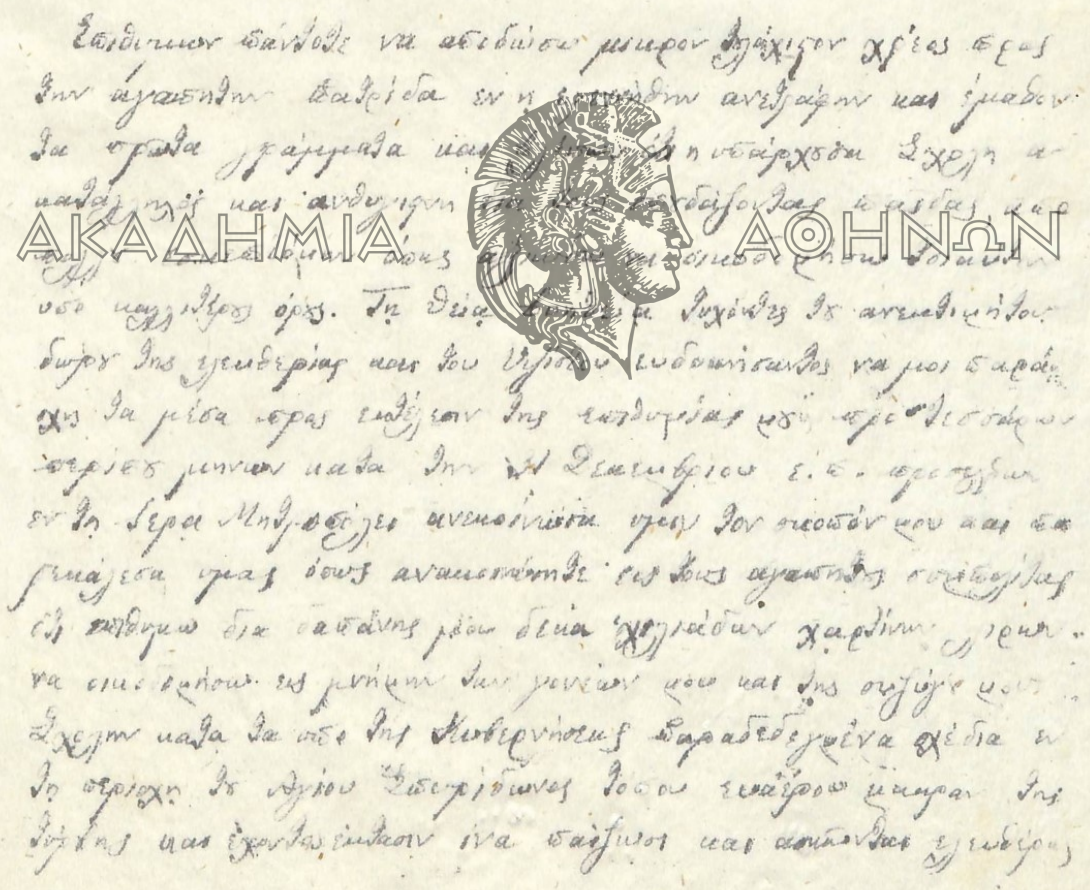 Επιθυμων πάντοτε να αποδώσω μικρον ελάχιστον χρέος προς
την αγαπητην Πατρίδα εν η εγεννήθην ανετράφην και έμαθον
τα πρωτα γράμματα και η υπάρχουσα Σχολη α-
κατάλληλος και ανθυγιεινη δια τους σπουδάζοντας παίδας
να οικοδομήσω τοιαυτην
υπο καλλιτέρους όρους. Τη θεία τυχόντες του ανεκτιμήτου
δώρου της ελευθερίας και του Υψίστου ευδοκήσαντος να μοι παρά-
σχη τα μέσα προς εκτέλεσιν της επιθυμίας μου προ τεσσάρων
περίπου μηνων κατα την Δεκεμβριου ε.π. προσελθων
εν τη Ιερα Μητροπόλει ανεκοίνωσα υμιν τον σκοπόν μου και πα
ρεκάλεσα υμας όπως ανακοινώσητε εις τους αγαπητους συμπολίτας
ότι επιθυμω δια δαπάνης μου δέκα χιλιάδων χαρτίνων λιρων
να οικοδομήσω εις μνήμην των γονέων μου και της συζύγου μου
Σχολην κατα τα υπο της Κυβερνήσεως παραδεδεγμένα σχέδια εν
τη περιοχη του Αγίου Σπυρίδωνος τόπου ευαέρου μακραν της
τύρβης και έχοντος έκτασιν ίνα παίζωσι και ασκωνται ελευθέρως
ΑΚΑΔΗΜΙΑ ΑΘΗΝΩΝ